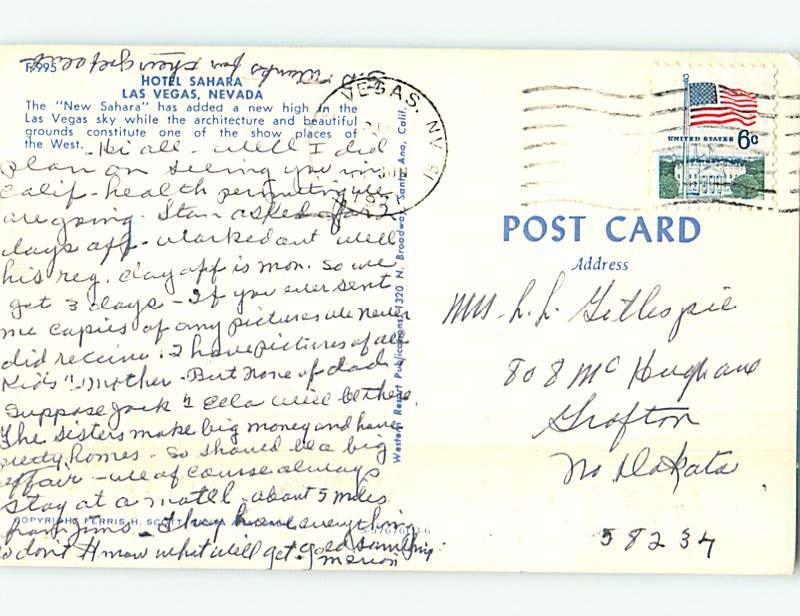 P.995
HOTEL SAHARA
LAS VEGAS, NEVADA
The "New Sahara" has added a new high in the
Las Vegas sky while the architecture and beautiful
grounds constitute one of the show places of
the West.
Hi all - Well I did
plan on seeing you in
Calif - health permitting we
are going. Stan asked for
days off - worked out well
his reg. day off is mon. so we
get 3 days - If you ever sent
me copies of any pictures we never
did receive. I have pictures of all
Kids "mother - But none of dad -
Suppose Jack & Ella will be there.
The sisters make big money and have
pretty homes - So should be a big
affair - we of course always
stay at a motel - about 5 miles
from Jims - they have everything
so don't know what will get - gold something
Marion
thanks for
COPYRIGHT FERRIS H. SCOTT
Western Resort Publications, 1320 N. Broadway, Santa Ana, Calif.
VEGAS, NV
UNITED STATES 6c
POST CARD
Address
Mrs. L. L. Gillespie
808 Mc Hugh ave
Grafton
No Dakota
58237